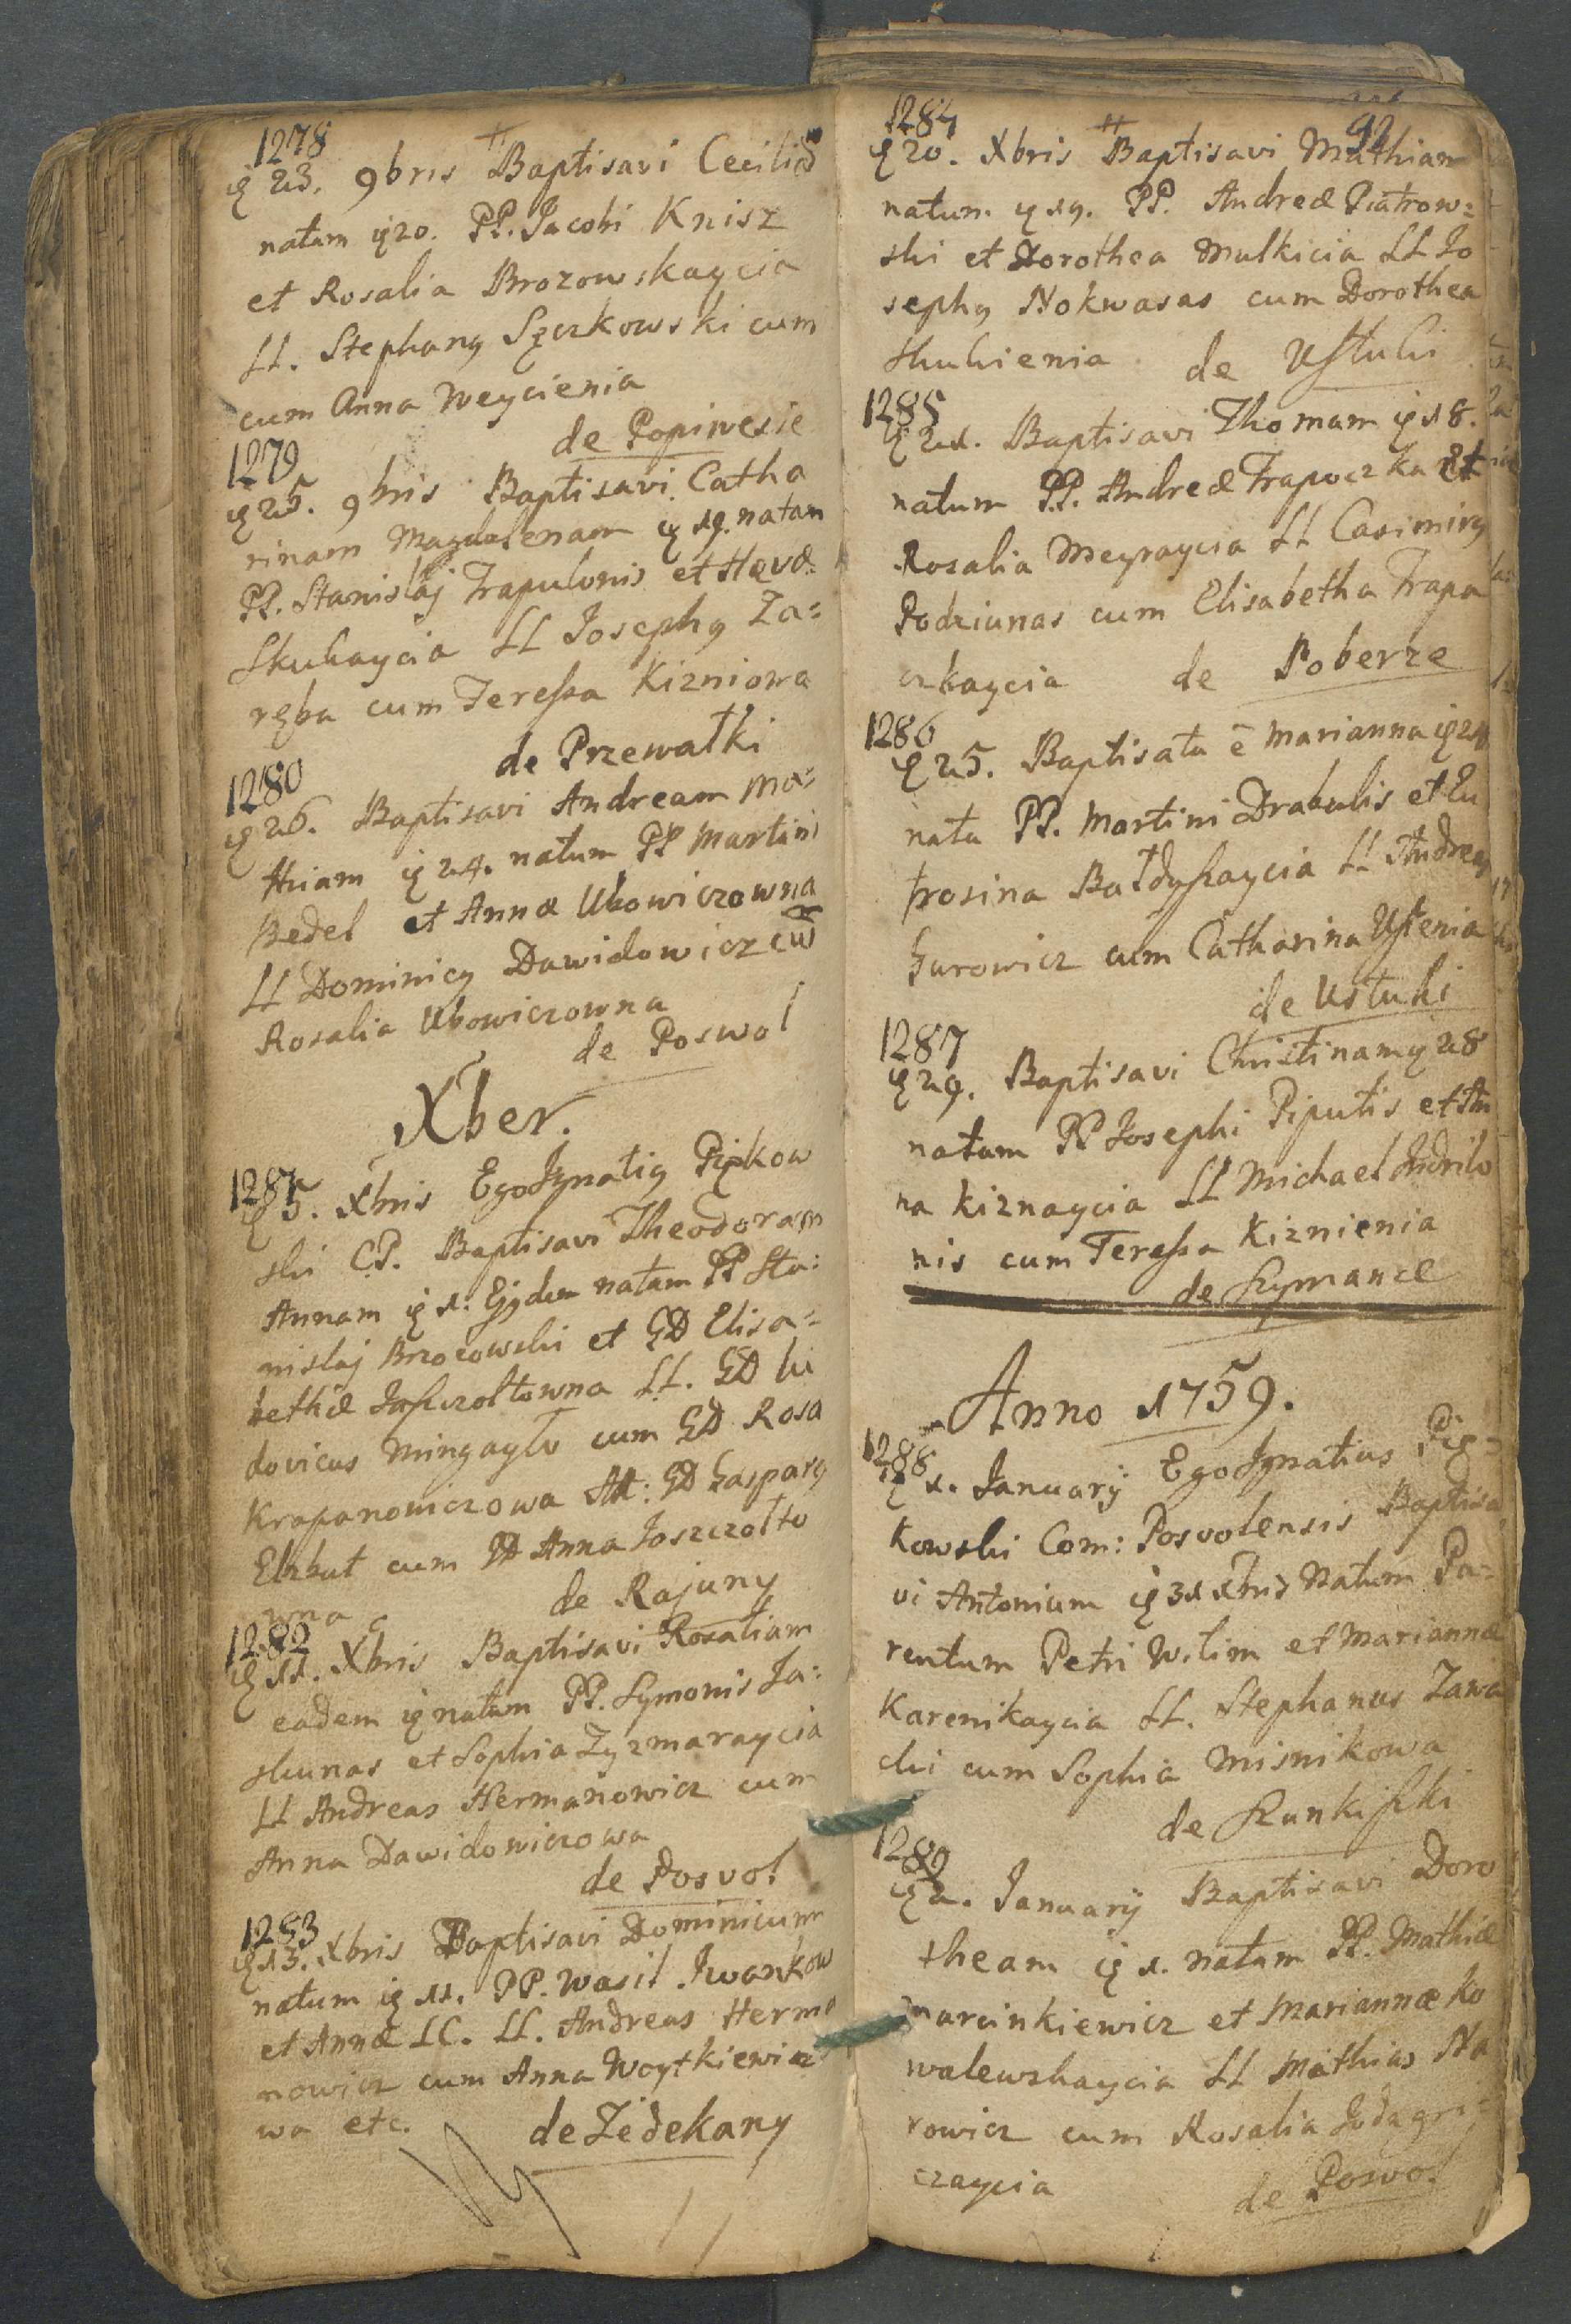 1278
ꝗ 23. 9bris Baptisavi Ceciliā
natam ꝗ 20. PP. Jacobi Knisz
et Rosalia Brozowskaycia
LL. Stephanꝯ Sęczkowski cum
cum Anna Weycienia
de Popiwesie
1279
ꝗ 25. 9bris Baptisavi Catha
rinam Magdalenam ꝗ 19. natam
PP. Stanislaj Trapulonis et Hævæ
Skuhaycia LL Josephꝯ Za=
ręba cum Teressa Kizniowa
de Przewałki
1280
ꝗ 26. Baptisavi Andream Ma=
thiam ꝗ 24. natum PP Martini
Bedel et Annæ Ukowiczowna
LL Dominicꝯ Dawidowicz cum
Rosalia Ukowiczowna
de Poswol
Xber.
1281
ꝗ 5. Xbris Ego Ignatiꝯ Piękow
ski CP. Baptisavi Theodoram
Annam ꝗ 1. Ejgdem natam PP Sta=
nislaj Brzozowski et GD Elisa=
bethæ Jaszczołtowna LL. GD Lu
dovicus Mingayło cum GD Rosa
Krapanowiczowa Att: GD Gasparꝯ
Elzbut cum GD Anna Joszczołto
wna
de Rajuny
1282
ꝗ 11. Xbris Baptisavi Rosaliam
eadem ꝗ natam PP. Symonis Ja=
skunas et Sophia Zyzmaraycia
LL Andreas Hermanowicz cum
Anna Dawidowiczowa
de Posvol
1283
ꝗ 13. Xbris Baptisavi Dominicum
natum ꝗ 11. PP. Wasil Iwankow
et Annæ LC. LL. Andreas Herma
nowicz cum Anna Woytkiewicz
wa etc.
de Zedekany
92
1284
ꝗ 20. Xbris Baptisavi Mathiam
natum ꝗ 19. PP. Andreæ Piatrow=
ski et Dorothea Mulkicia LL Jo
sephꝯ Nokwasas cum Dorothea
Skuhienia de Ustuki
1285
ꝗ 21. Baptisavi Thomam ꝗ 18.
natum PP. Andreæ Trapoczka et
Rosalia Meyraycia LL Casimirꝯ
Podziunas cum Elisabetha Trapa
czkaycia de Poberze
1286
ꝗ 25. Baptisata ē Marianna ꝗ 24
nata PP. Martini Drabulis et Eu
frosina Bałdyszaycia LL Andreas
Gurowicz cum Catharina Ustenia
de Ustuki
1287
ꝗ 29. Baptisavi Christinam ꝗ 28
natam PP Josephi Piputis et An
na Kiznaycia LL Michael Andrilo
nis cum Teressa Kiznienia
de Szymance
Anno 1759.
1288
ꝗ 1. Januarÿ Ego Ignatius Pię=
kowski Com: Posvolensis Baptisa
vi Antonium ꝗ 31 Xbris Natum Pa=
rentum Petri Wilim et Mariannæ
Karenikaycia LL. Stephanus Zawa
cki cum Sophia Misnikowa
de Kunkiszki
1289
ꝗ 2. Januarÿ Baptisavi Doro
theam ꝗ 1. natam PP. Mathiæ
Marcinkiewicz et Mariannæ Ko
walewskaycia LL Mathias Na
rowicz cum Rosalia Jodagry=
czaycia
de Posvol